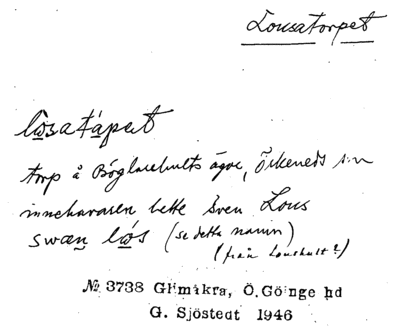 Lousatorpet
lo̤satåpeit
torp å Böglarehults ägor, Örkeneds sn
innehavaren hette Sven Lous
swæn lo̤s (se detta namn)
(från Loushult?)
№ 3738 Glimåkra, Ö. Göinge hd
G. Sjöstedt 1946